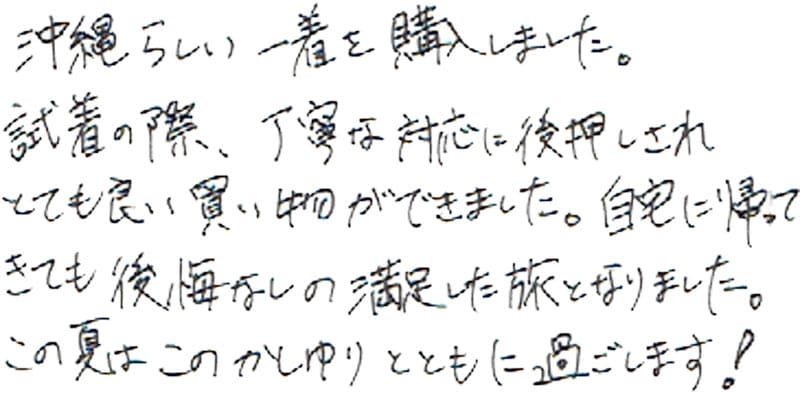 沖縄らしい一着を購入しました。
試着の際、丁寧な対応に後押しされ
とても良い買い物ができました。自宅に帰って
きても後悔なしの満足した旅となりました。
この夏はこのかしゆりとともに過ごします!